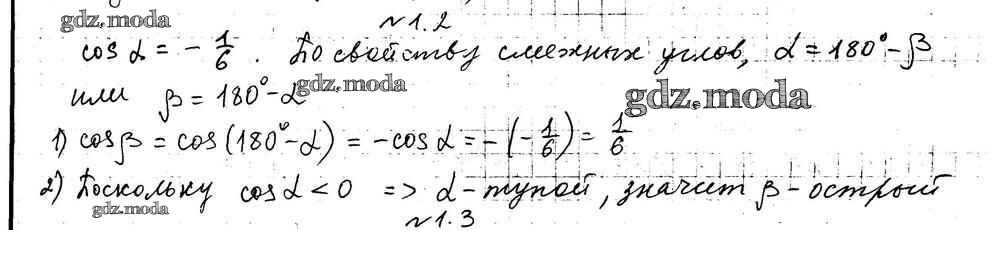 №1.2
gdz.moda
cos α = - 1/6 . По свойству смежных углов, α = 180° - β
или β = 180° - α gdz.moda
gdz.moda
1) cos β = cos (180° - α) = - cos α = - (- 1/6) = 1/6
2) Поскольку cos α < 0 => α - тупой, значит β - острый
gdz.moda
№1.3